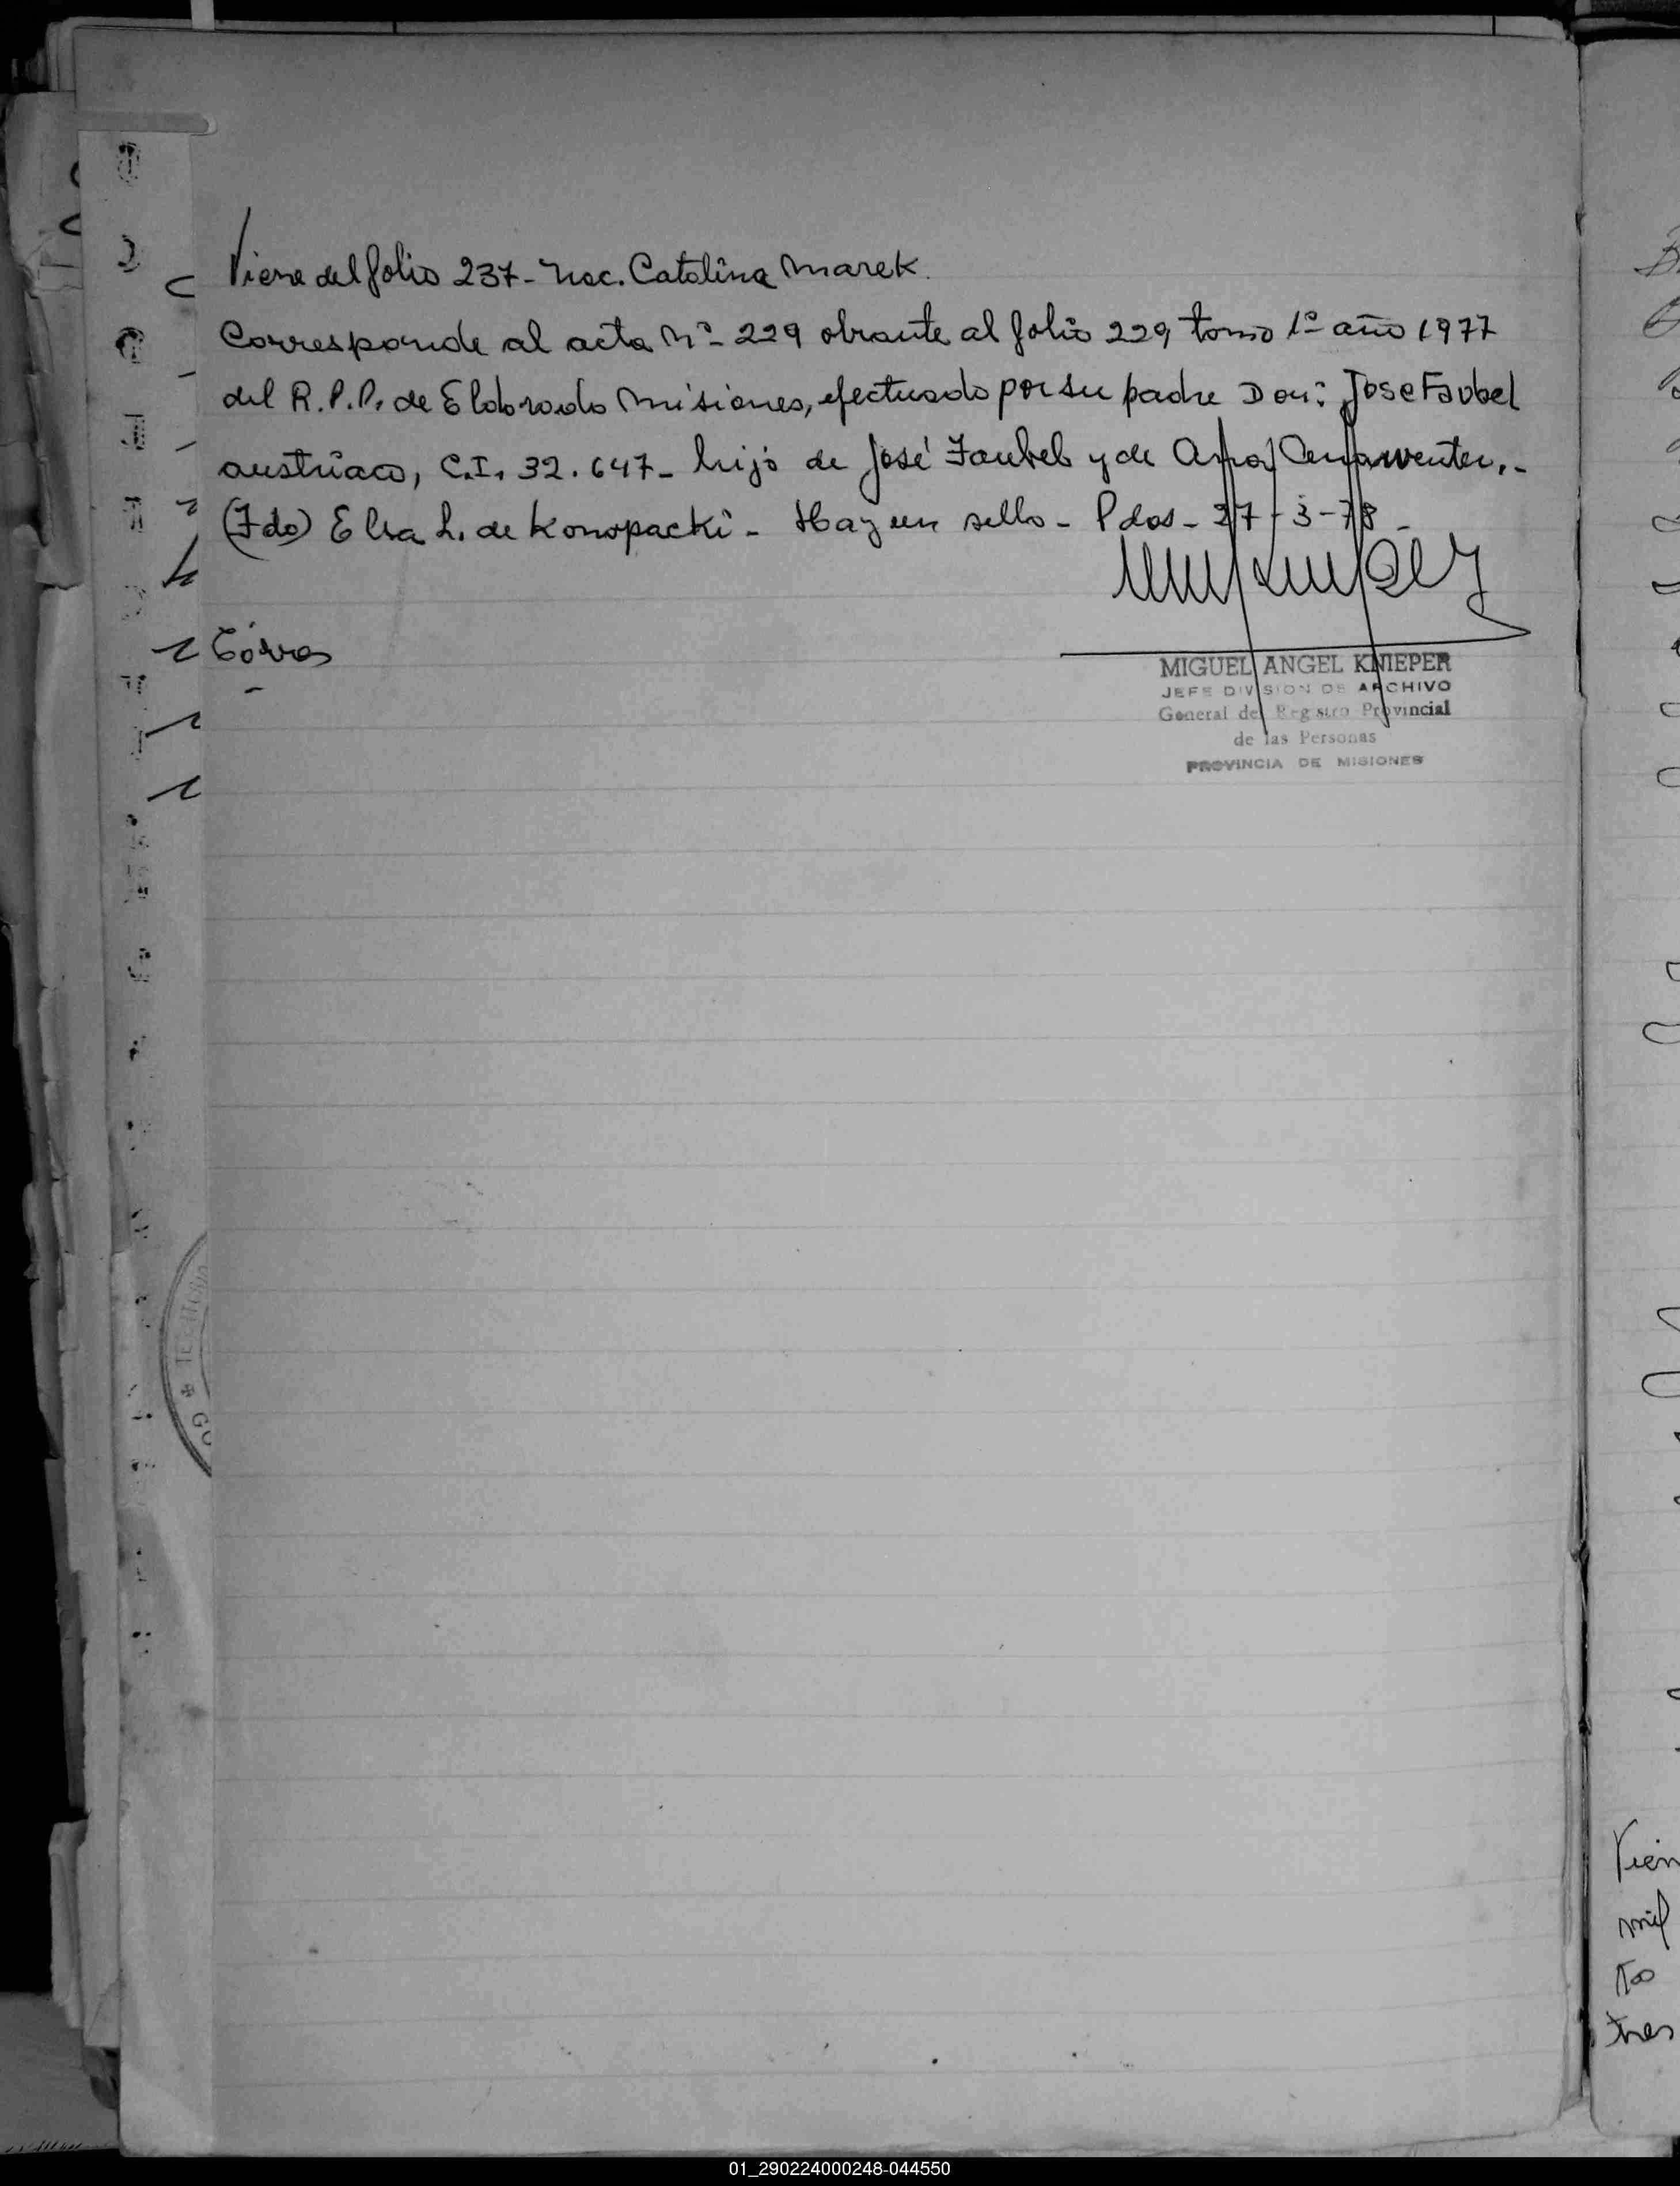 Viene del folio 237 - Nac. Catalina Marek.
Corresponde al acta Nº 229 obrante al folio 229 tomo 1º año 1977
del R.P.P. de Eldorado Misiones, efectuado por su padre Don: Jose Faubel
austríaco, C.I. 32.647 - hijo de José Faubel y de Ana
(Fdo) Elsa L. de Konopacki - Hay un sello - Pdas - 27-3-78 -
MIGUEL ANGEL KNIEPER
JEFE DIVISION DE ARCHIVO
General del Registro Provincial
de las Personas
PROVINCIA DE MISIONES
GO
Vien
mil
to
tres
01_290224000248-044550